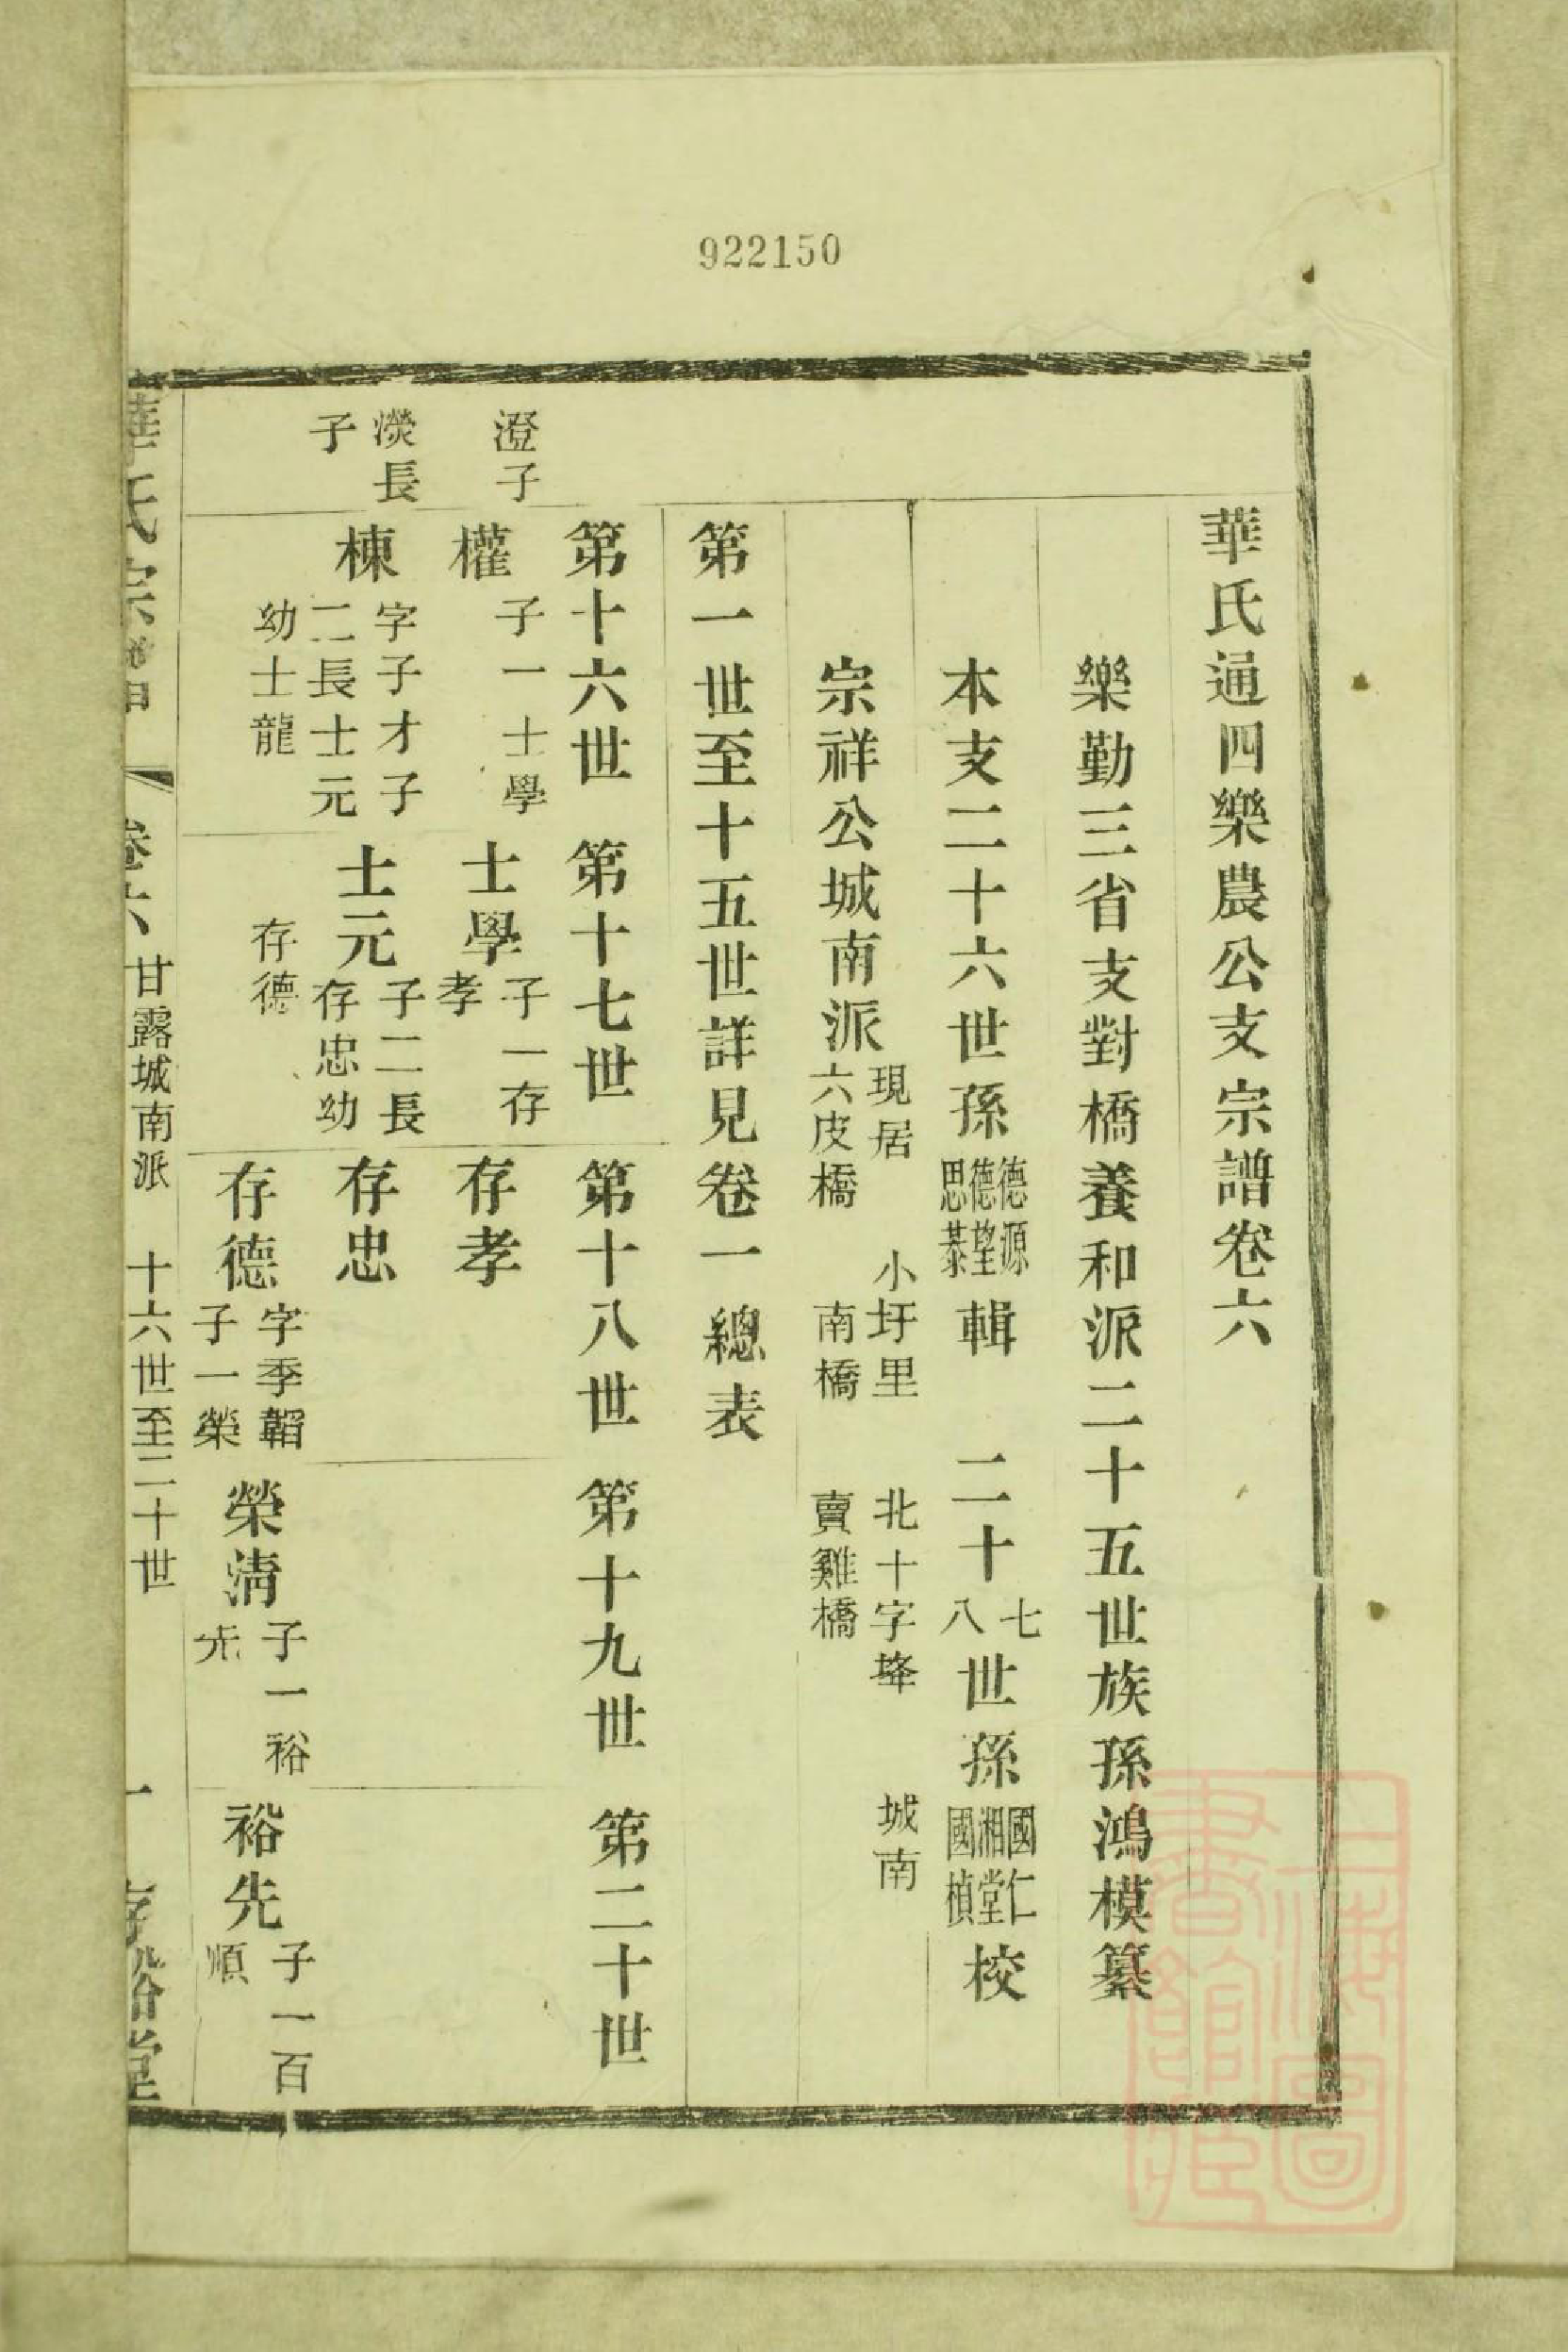 922150
華氏通四樂農公支宗譜卷六
樂勤三省支對橋養和派二十五世族孫鴻模纂
本支二十六世孫
德源
德望
思恭
輯
二十
七
八
世孫
國仁
湘堂
國楨
校
宗祥公城南派
現居
六皮橋
小圩里
南橋
北十字夅
賣雞橋
城南
第一世至十五世詳見卷一總表
第十六世
第十七世
第十八世
第十九世
第二十世
澄子
權
子一士學
士學
子一存
孝
存孝
濙長
子
棟
字子才子
二長士元
幼士龍
士元
子二長
存忠幼
存德
存忠
存德
字季韜
子一榮
榮清
子一裕
先
裕先
子一百
順
華氏宗譜
卷六
甘露城南派
十六世至二十世
一
存裕堂
上海圖書館藏